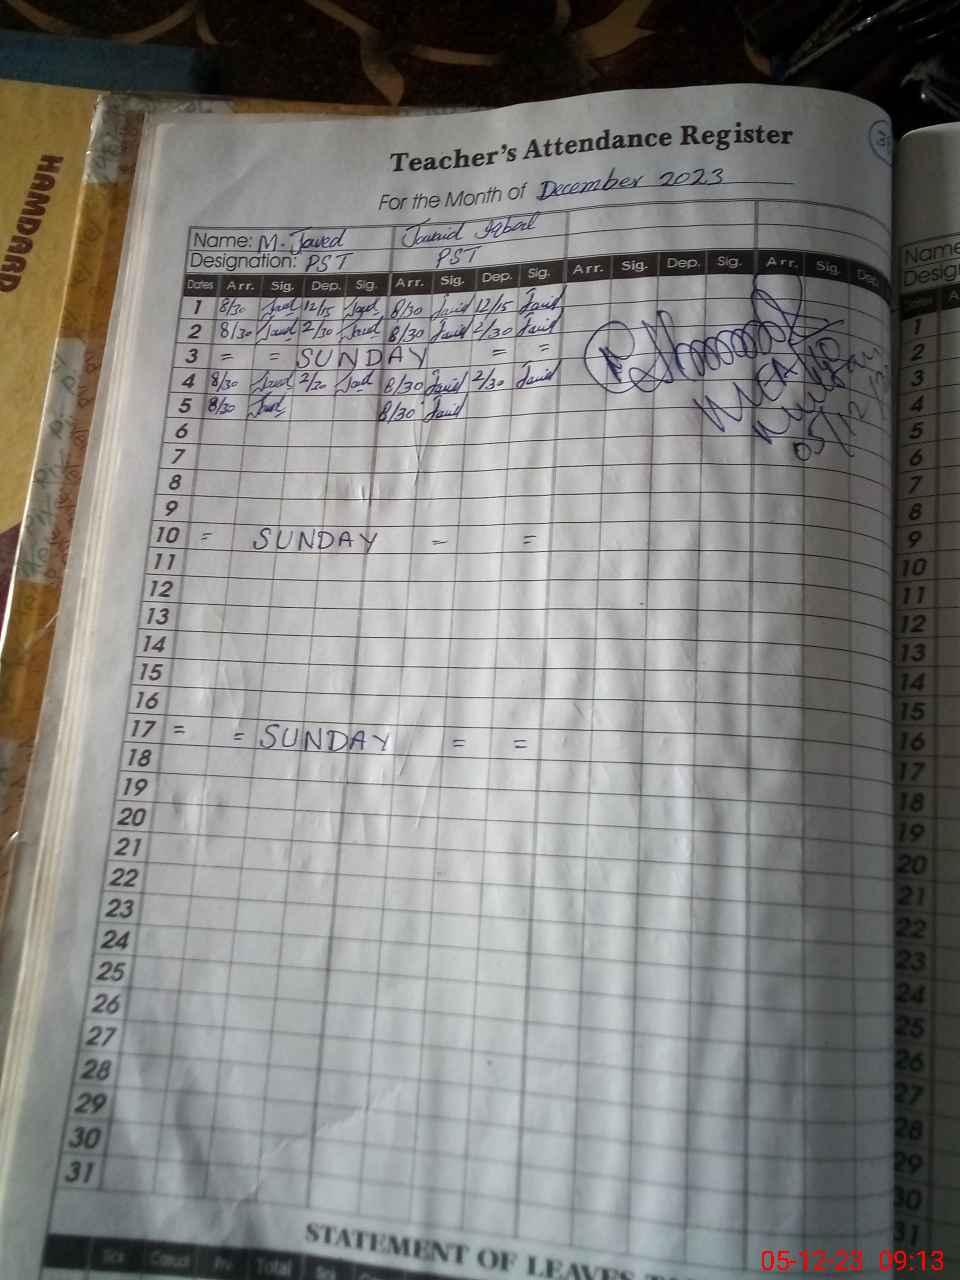 HAMDARD
Teacher's Attendance Register
For the Month of December 2023
Name: M. Javed Jawaid Iqbal
Designation: PST PST
Dates Arr. Sig. Dep. Sig. Arr. Sig. Dep. Sig. Arr. Sig. Dep. Sig. Arr. Sig. Dep.
1 8/30 Javed 12/15 Javed 8/30 Javid 12/15 Javid
2 8/30 Javed 2/30 Javed 8/30 Javid 2/30 Javid
3 = = SUNDAY = =
4 8/30 Javed 2/30 Javed 8/30 Javid 2/30 Javid
5 8/30 Javed 8/30 Javid
05/12
6
7
8
9
10 = SUNDAY = =
11
12
13
14
15
16
17 = = SUNDAY = =
18
19
20
21
22
23
24
25
26
27
28
29
30
31
STATEMENT OF LEAVES
Sick Casual Prv Total
Name
Desig
1
2
3
4
5
6
7
8
9
10
11
12
13
14
15
16
17
18
19
20
21
22
23
24
25
26
27
28
29
30
31
05-12-23 09:13